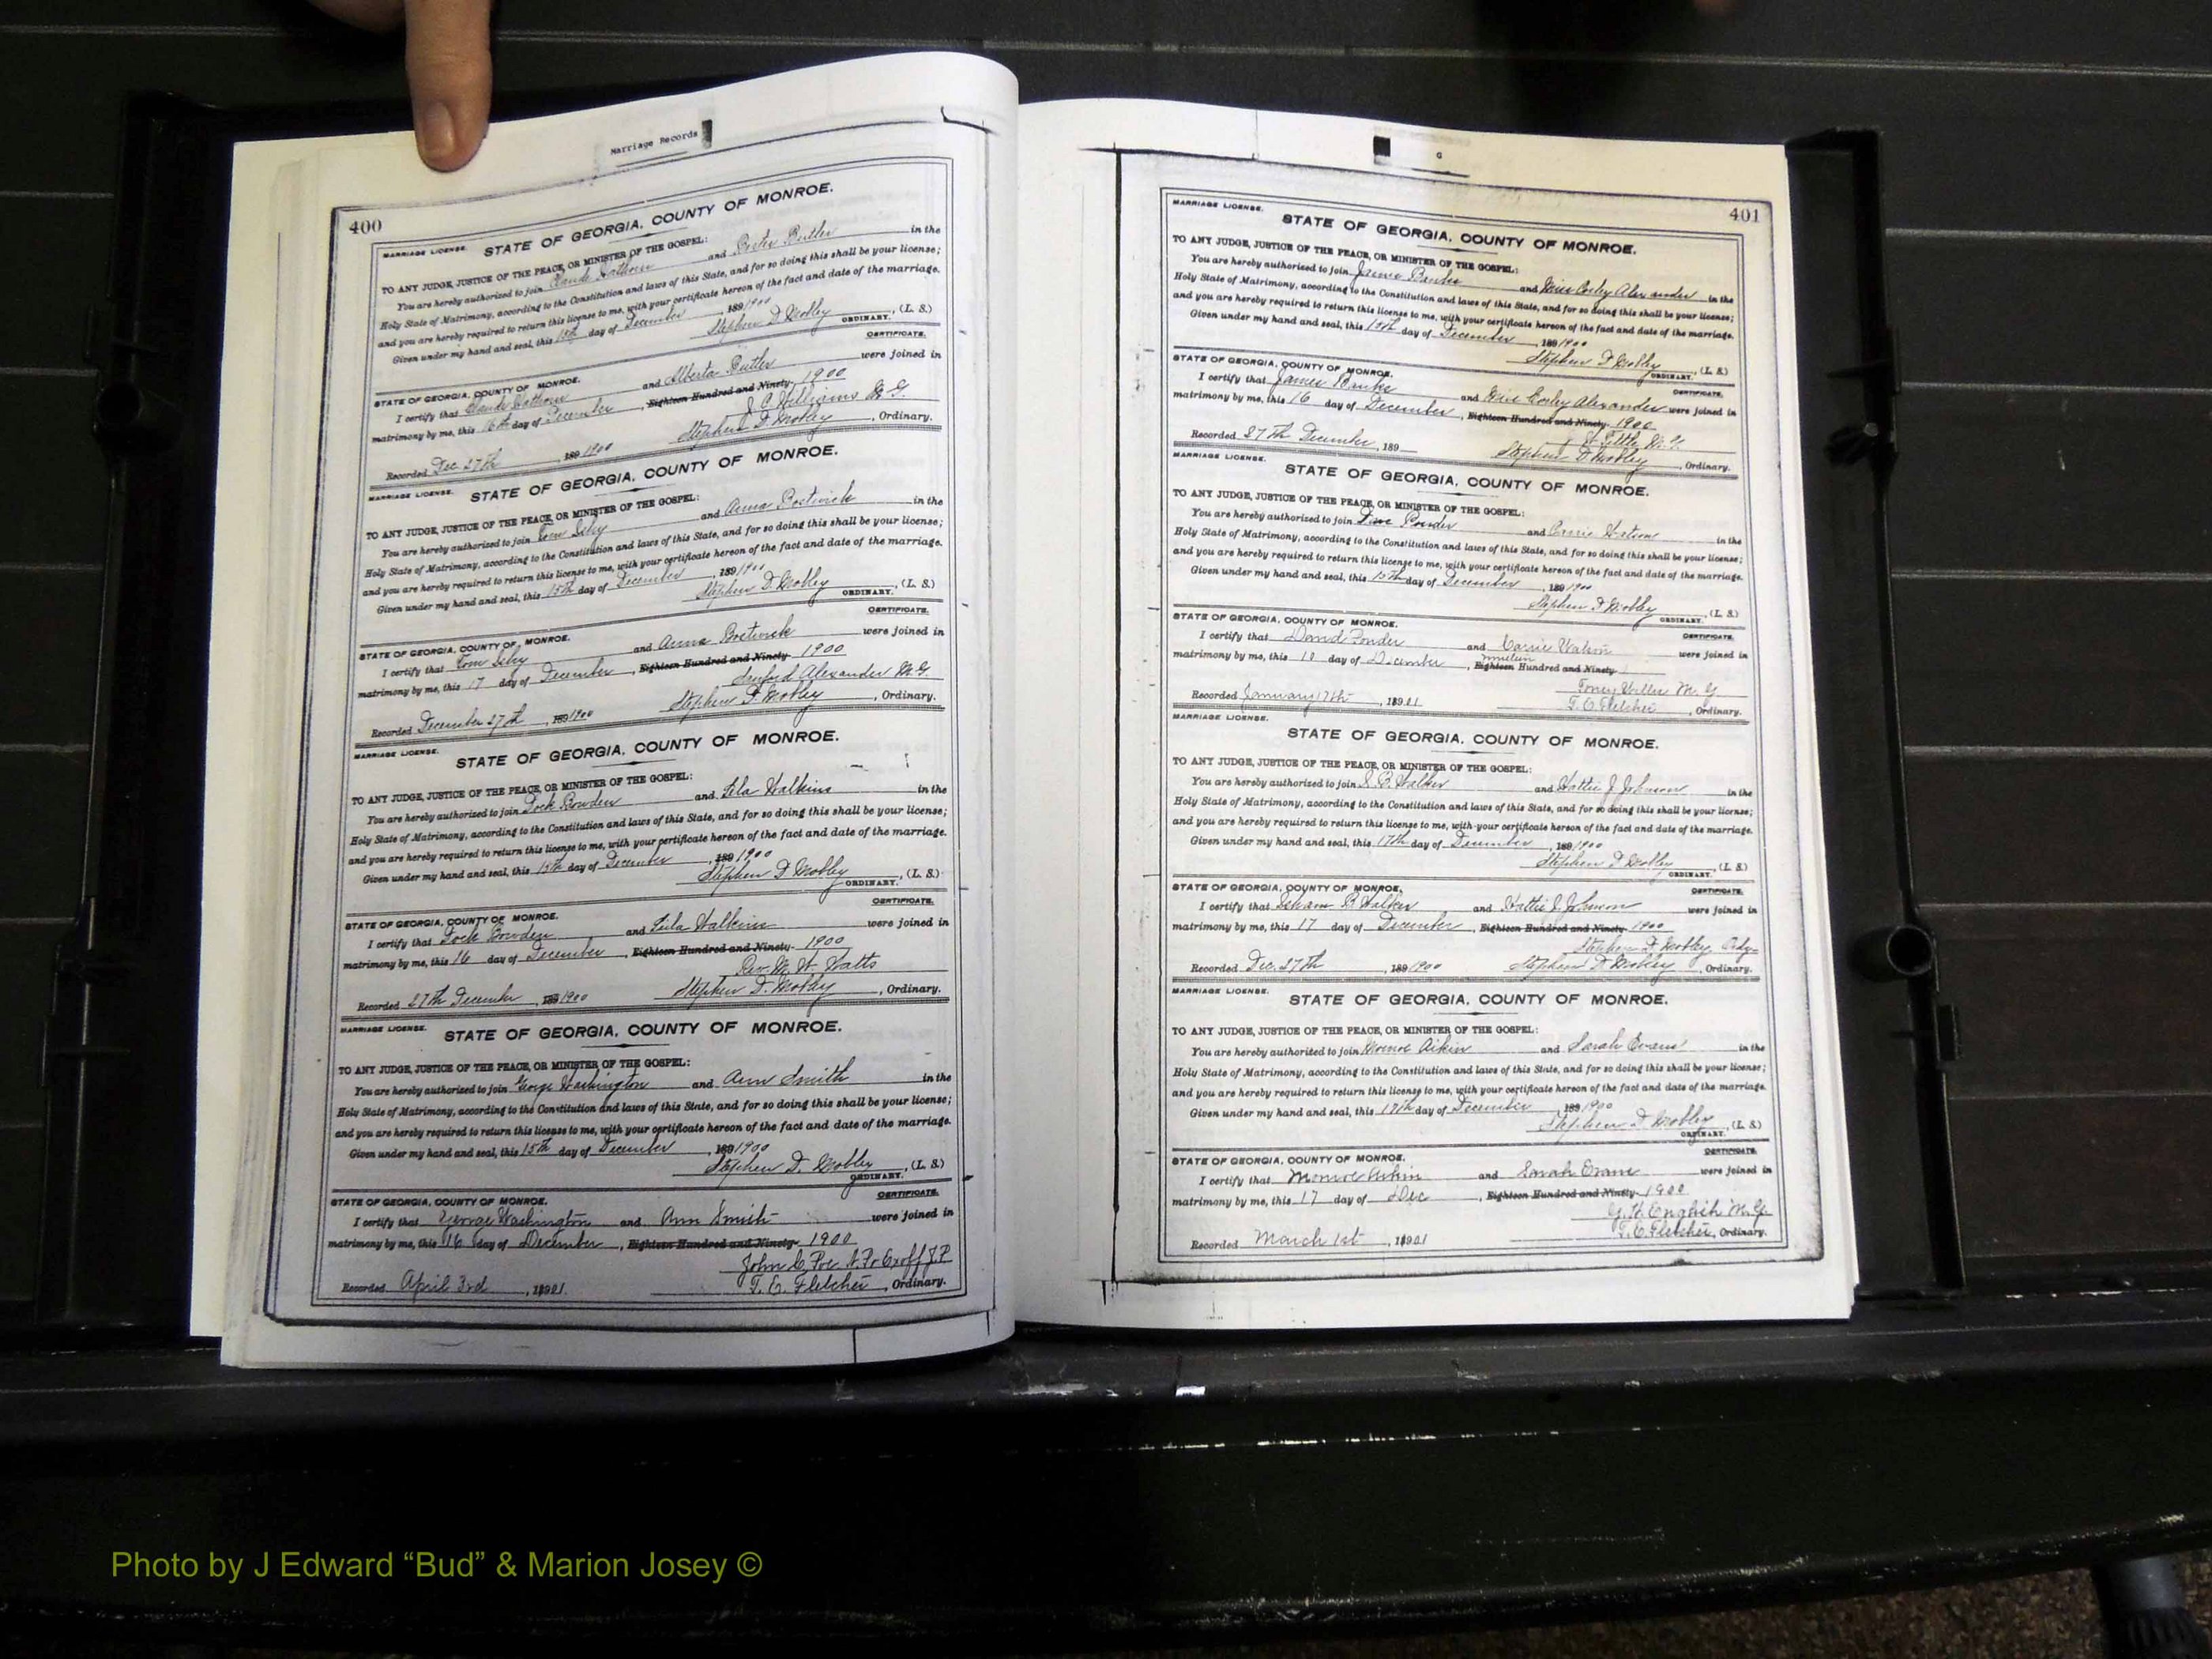 Marriage Records
400
MARRIAGE LICENSE.
STATE OF GEORGIA, COUNTY OF MONROE.
TO ANY JUDGE, JUSTICE OF THE PEACE, OR MINISTER OF THE GOSPEL:
You are hereby authorized to join Claude and Butler in the
Holy State of Matrimony, according to the Constitution and laws of this State, and for so doing this shall be your license;
and you are hereby required to return this license to me, with your certificate hereon of the fact and date of the marriage.
Given under my hand and seal, this 15th day of December, 189 1900
Stephen D Mobley (L. S.)
ORDINARY.
CERTIFICATE.
STATE OF GEORGIA, COUNTY OF MONROE.
I certify that Claude and Alberta Butler were joined in
matrimony by me, this 16th day of December, Eighteen Hundred and Ninety- 1900
J. C. Williams M. G.
Recorded Dec. 27th, 189 1900 Stephen D. Mobley, Ordinary.
MARRIAGE LICENSE.
STATE OF GEORGIA, COUNTY OF MONROE.
TO ANY JUDGE, JUSTICE OF THE PEACE, OR MINISTER OF THE GOSPEL:
You are hereby authorized to join Tom and Anna Bostwick in the
Holy State of Matrimony, according to the Constitution and laws of this State, and for so doing this shall be your license;
and you are hereby required to return this license to me, with your certificate hereon of the fact and date of the marriage.
Given under my hand and seal, this 15th day of December, 189 1900
Stephen D. Mobley (L. S.)
ORDINARY.
CERTIFICATE.
STATE OF GEORGIA, COUNTY OF MONROE.
I certify that Tom and Anna Bostwick were joined in
matrimony by me, this 17 day of December, Eighteen Hundred and Ninety- 1900
Alexander M. G.
Recorded December 27th, 189 1900 Stephen D. Mobley, Ordinary.
MARRIAGE LICENSE.
STATE OF GEORGIA, COUNTY OF MONROE.
TO ANY JUDGE, JUSTICE OF THE PEACE, OR MINISTER OF THE GOSPEL:
You are hereby authorized to join Dock Bowden and Lila Walkins in the
Holy State of Matrimony, according to the Constitution and laws of this State, and for so doing this shall be your license;
and you are hereby required to return this license to me, with your certificate hereon of the fact and date of the marriage.
Given under my hand and seal, this 15th day of December, 189 1900
Stephen D Mobley (L. S.)
ORDINARY.
CERTIFICATE.
STATE OF GEORGIA, COUNTY OF MONROE.
I certify that Dock Bowden and Lila Walkins were joined in
matrimony by me, this 16 day of December, Eighteen Hundred and Ninety- 1900
Rev. M. W. Watts
Recorded 27th December, 189 1900 Stephen D. Mobley, Ordinary.
MARRIAGE LICENSE.
STATE OF GEORGIA, COUNTY OF MONROE.
TO ANY JUDGE, JUSTICE OF THE PEACE, OR MINISTER OF THE GOSPEL:
You are hereby authorized to join George Washington and Ann Smith in the
Holy State of Matrimony, according to the Constitution and laws of this State, and for so doing this shall be your license;
and you are hereby required to return this license to me, with your certificate hereon of the fact and date of the marriage.
Given under my hand and seal, this 15th day of December, 189 1900
Stephen D. Mobley (L. S.)
ORDINARY.
CERTIFICATE.
STATE OF GEORGIA, COUNTY OF MONROE.
I certify that George Washington and Ann Smith were joined in
matrimony by me, this 16 day of December, Eighteen Hundred and Ninety- 1900
John C. Poe N. P. & Exoff J. P.
Recorded April 3rd, 1901 T. E. Fletcher, Ordinary.
401
MARRIAGE LICENSE.
STATE OF GEORGIA, COUNTY OF MONROE.
TO ANY JUDGE, JUSTICE OF THE PEACE, OR MINISTER OF THE GOSPEL:
You are hereby authorized to join James Banks and Miss Alexander in the
Holy State of Matrimony, according to the Constitution and laws of this State, and for so doing this shall be your license;
and you are hereby required to return this license to me, with your certificate hereon of the fact and date of the marriage.
Given under my hand and seal, this 15th day of December, 189 1900
Stephen D Mobley (L. S.)
ORDINARY.
CERTIFICATE.
STATE OF GEORGIA, COUNTY OF MONROE.
I certify that James Banks and Miss Alexander were joined in
matrimony by me, this 16 day of December, Eighteen Hundred and Ninety- 1900
Recorded 27th December, 189 Stephen D Mobley, Ordinary.
MARRIAGE LICENSE.
STATE OF GEORGIA, COUNTY OF MONROE.
TO ANY JUDGE, JUSTICE OF THE PEACE, OR MINISTER OF THE GOSPEL:
You are hereby authorized to join Dave Ponder and Carrie Watson in the
Holy State of Matrimony, according to the Constitution and laws of this State, and for so doing this shall be your license;
and you are hereby required to return this license to me, with your certificate hereon of the fact and date of the marriage.
Given under my hand and seal, this 15th day of December, 189 1900
Stephen D Mobley (L. S.)
ORDINARY.
CERTIFICATE.
STATE OF GEORGIA, COUNTY OF MONROE.
I certify that David Ponder and Carrie Watson were joined in
matrimony by me, this day of December, Eighteen Hundred and Ninety-
Toney M. G.
Recorded January 17th, 1901 T. E. Fletcher, Ordinary.
MARRIAGE LICENSE.
STATE OF GEORGIA, COUNTY OF MONROE.
TO ANY JUDGE, JUSTICE OF THE PEACE, OR MINISTER OF THE GOSPEL:
You are hereby authorized to join I. B. Walker and Hattie J Johnson in the
Holy State of Matrimony, according to the Constitution and laws of this State, and for so doing this shall be your license;
and you are hereby required to return this license to me, with your certificate hereon of the fact and date of the marriage.
Given under my hand and seal, this 17th day of December, 189 1900
Stephen D Mobley (L. S.)
ORDINARY.
CERTIFICATE.
STATE OF GEORGIA, COUNTY OF MONROE.
I certify that Isham B. Walker and Hattie J. Johnson were joined in
matrimony by me, this 17 day of December, Eighteen Hundred and Ninety- 1900
Stephen D. Mobley Ordy-
Recorded Dec. 27th, 189 1900 Stephen D. Mobley, Ordinary.
MARRIAGE LICENSE.
STATE OF GEORGIA, COUNTY OF MONROE.
TO ANY JUDGE, JUSTICE OF THE PEACE, OR MINISTER OF THE GOSPEL:
You are hereby authorized to join Monroe Aikin and Sarah Evans in the
Holy State of Matrimony, according to the Constitution and laws of this State, and for so doing this shall be your license;
and you are hereby required to return this license to me, with your certificate hereon of the fact and date of the marriage.
Given under my hand and seal, this 17th day of December, 189 1900
Stephen D Mobley (L. S.)
ORDINARY.
CERTIFICATE.
STATE OF GEORGIA, COUNTY OF MONROE.
I certify that Monroe Aikin and Sarah Evans were joined in
matrimony by me, this 17 day of Dec, Eighteen Hundred and Ninety- 1900
G. H. English M. G.
Recorded March 1st, 1901 T. E. Fletcher, Ordinary.
Photo by J Edward “Bud” & Marion Josey ©